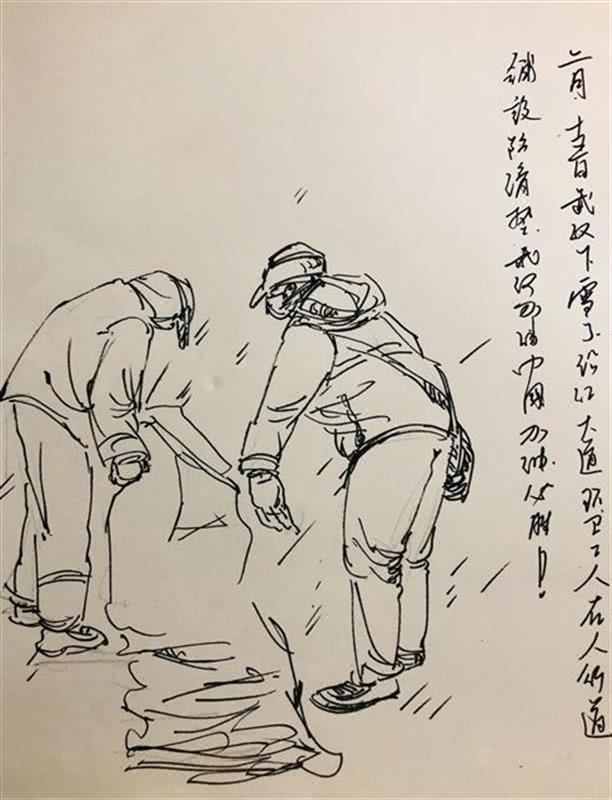 二月十五日武汉下雪了沿江大道环卫工人在人行道
铺设防滑垫武汉加油中国加油必胜！